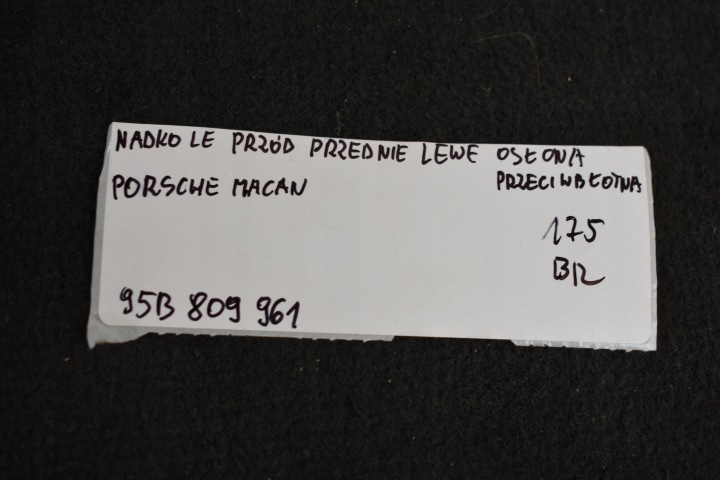 NADKOLE PRZÓD PRZEDNIE LEWE OSŁONA
PORSCHE MACAN PRZECIWBŁOTNA
175
BR
95B 809 961